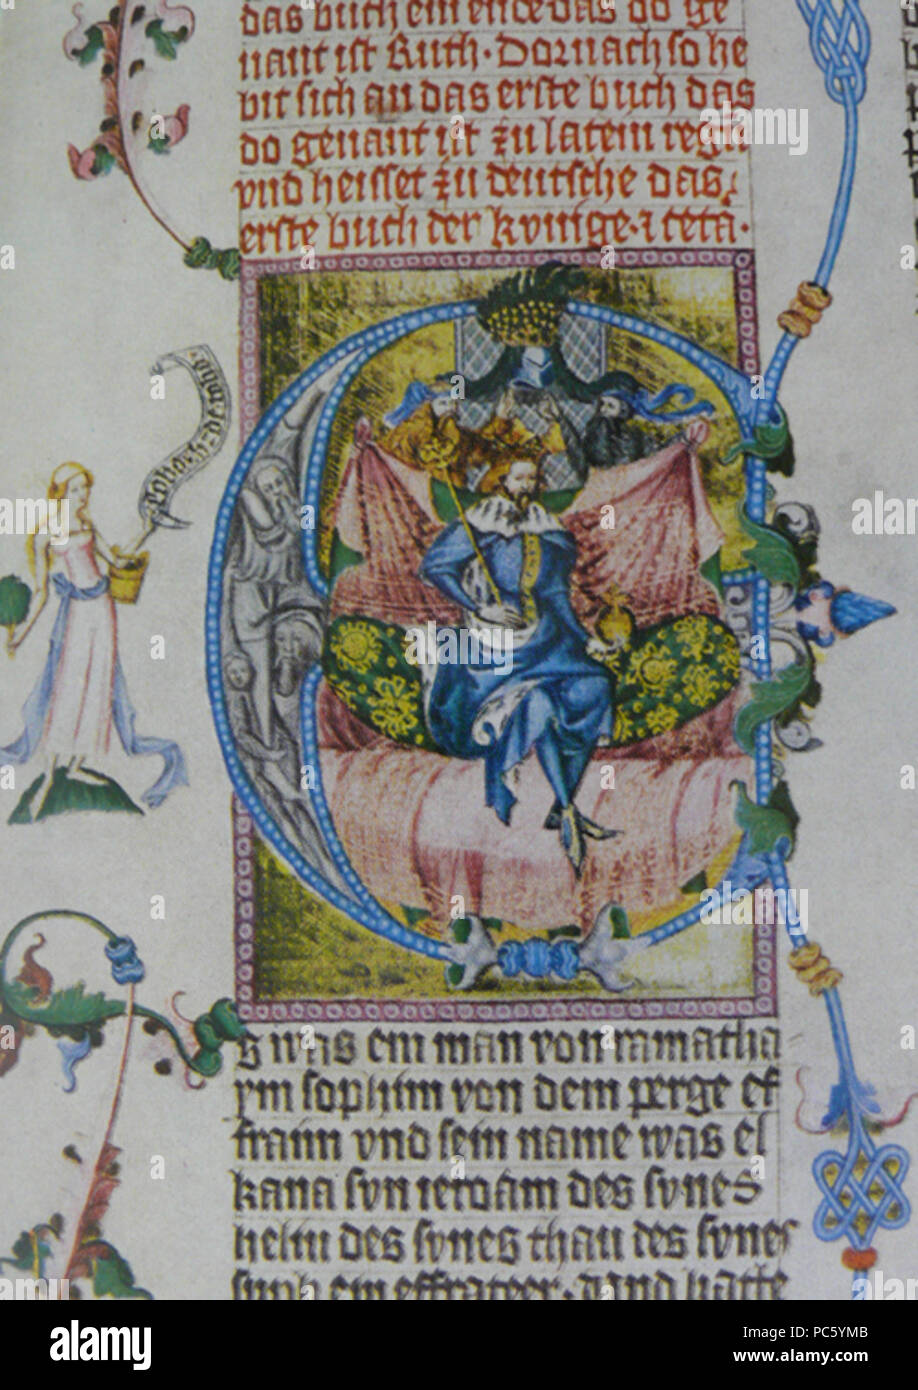 das buch ein ende das do ge
nant ist Ruth · Dornach so he
bit sich an das erste buch das
do genant ist zu latein regū
vnd heisset zu deutsche das
erste buch der kvnige · ⁊ cetā ·
S was ein man von ramatha
ym sophim von dem perge ef
fraim vnd sein name was el
kana svn ieroam des svnes
heliu des svnes thau des svnes
suph ein effrateer · vnd hatte
a alamy stock photo
alamy
Image ID: PC5YMB
www.alamy.com